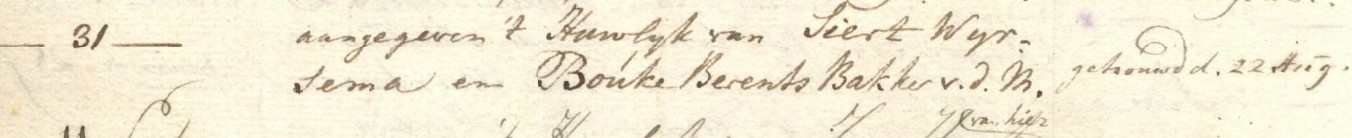 — 31 — aangegeven 't Huwlyk van Siert Wyr-
sema en Bouke Berents Bakker v. d. M. getrouwd d. 22 Aug.
van hier